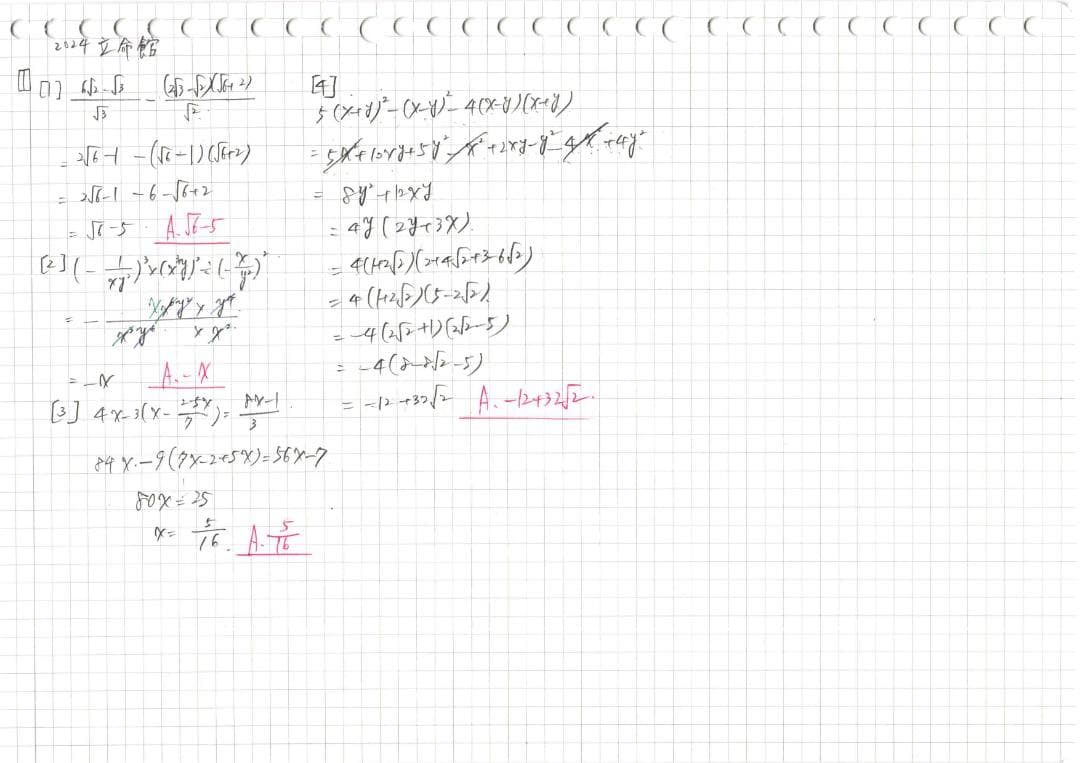 2024 立命館
1 [1] (6√2-√3)/√3 - (2√3-√2)(√6+2)/√2
= 2√6-1 -(√6-1)(√6+2)
= 2√6-1 -6-√6+2
= √6-5 A.√6-5
[2] (- 1/xy²)³×(x³y)²÷(-x/y²)²
= -
= -x A.-x
[3] 4x-3(x- (2-5x)/7)= (8x-1)/3
84x-9(7x-2+5x)=56x-7
80x=25
x= 5/16 A. 5/16
[4]
5(x+y)²-(x-y)²-4(x-y)(x+y)
= 5x²+10xy+5y²-x²+2xy-y²-4x²+4y²
= 8y²+12xy
= 4y(2y+3x)
= 4(1+2√2)(2+4√2+3-6√2)
= 4(1+2√2)(5-2√2)
= -4(2√2+1)(2√2-5)
= -4(8-8√2-5)
= -12+32√2 A. -12+32√2.